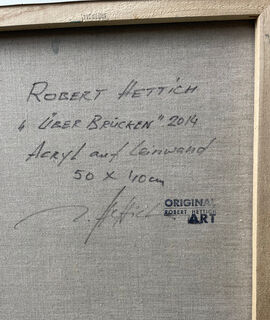 ROBERT HETTICH
„ ÜBER BRÜCKEN" 2014
Acryl auf Leinwand
50 x 40 cm
R. Hettich
ORIGINAL
ROBERT HETTICH
ART